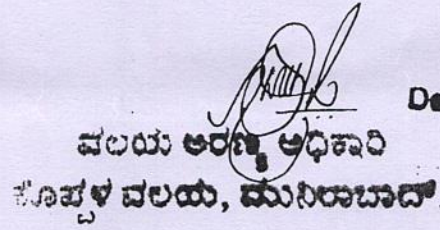 De
ವಲಯ ಅರಣ್ಯ ಅಧಿಕಾರಿ
ಕೊಪ್ಪಳ ವಲಯ, ಮುನಿರಾಬಾದ್